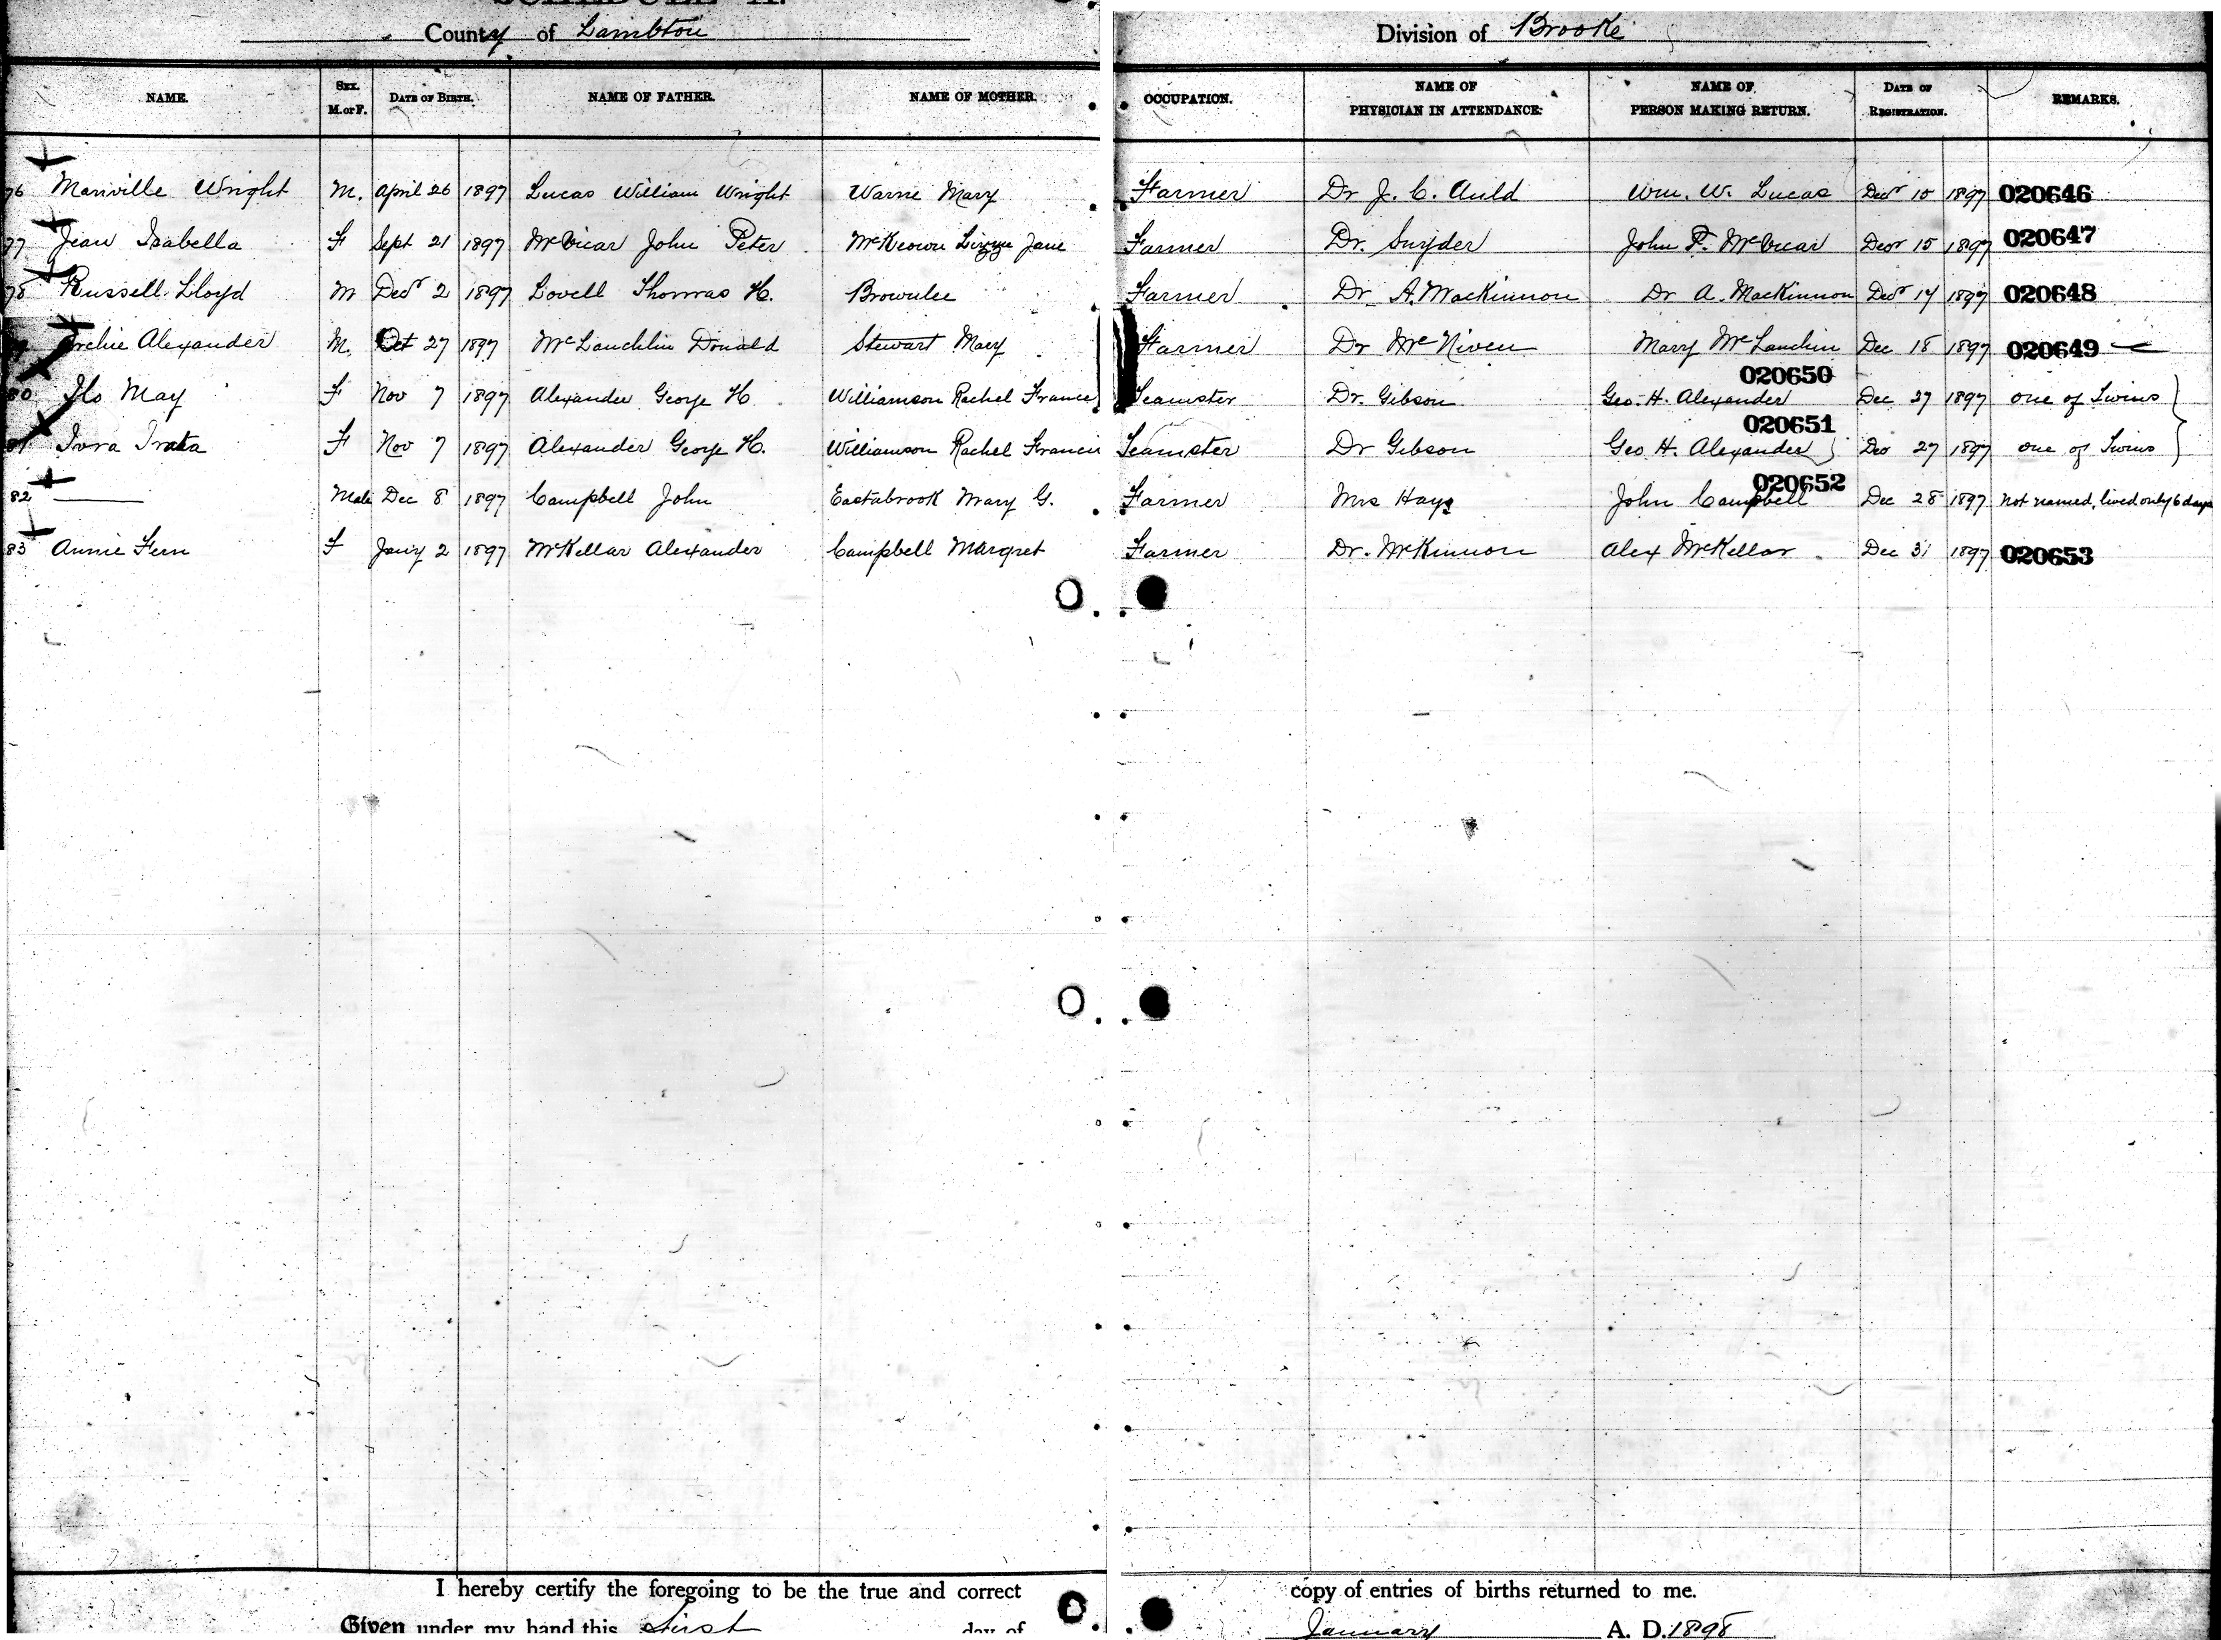 County of Lambton Division of Brooke
NAME. SEX. M. or F. DATE OF BIRTH. NAME OF FATHER. NAME OF MOTHER. OCCUPATION. NAME OF PHYSICIAN IN ATTENDANCE: NAME OF PERSON MAKING RETURN. DATE OF REGISTRATION. REMARKS.
76 Manville Wright M. April 26 1897 Lucas William Wright Warne Mary Farmer Dr J. C. Auld Wm. W. Lucas Decr 10 1897 020646
77 Jean Isabella F Sept 21 1897 McVicar John Peter McKeown Lizzie Jane Farmer Dr. Snyder John P. McVicar Decr 15 1897 020647
78 Russell Lloyd M Decr 2 1897 Lovell Thomas H. Brownlee Farmer Dr A. MacKinnon Dr A. MacKinnon Decr 17 1897 020648
Archie Alexander M. Oct 27 1897 McLauchlin Donald Stewart Mary Farmer Dr McNiven Mary McLauchlin Dec 18 1897 020649
80 Ilo May F Nov 7 1897 Alexander George H. Williamson Rachel Francis Teamster Dr. Gibson Geo. H. Alexander 020650 Dec 27 1897 one of Twins
81 F Nov 7 1897 Alexander George H. Williamson Rachel Francis Teamster Dr Gibson Geo H. Alexander 020651 Dec 27 1897 one of Twins
82 Male Dec 8 1897 Campbell John Eastabrook Mary G. Farmer Mrs Hays John Campbell 020652 Dec 28 1897 not named, lived only 6 days
83 Annie Fern F Jany 2 1897 McKellar Alexander Campbell Margret Farmer Dr. McKinnon Alex McKellar Dec 31 1897 020653
I hereby certify the foregoing to be the true and correct copy of entries of births returned to me.
Given under my hand this first day of January A. D. 1898